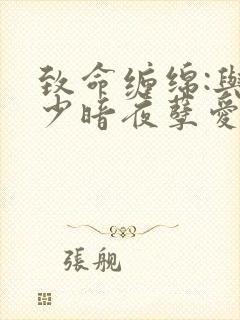 致命缠绵:與
少暗夜孽愛
張舰